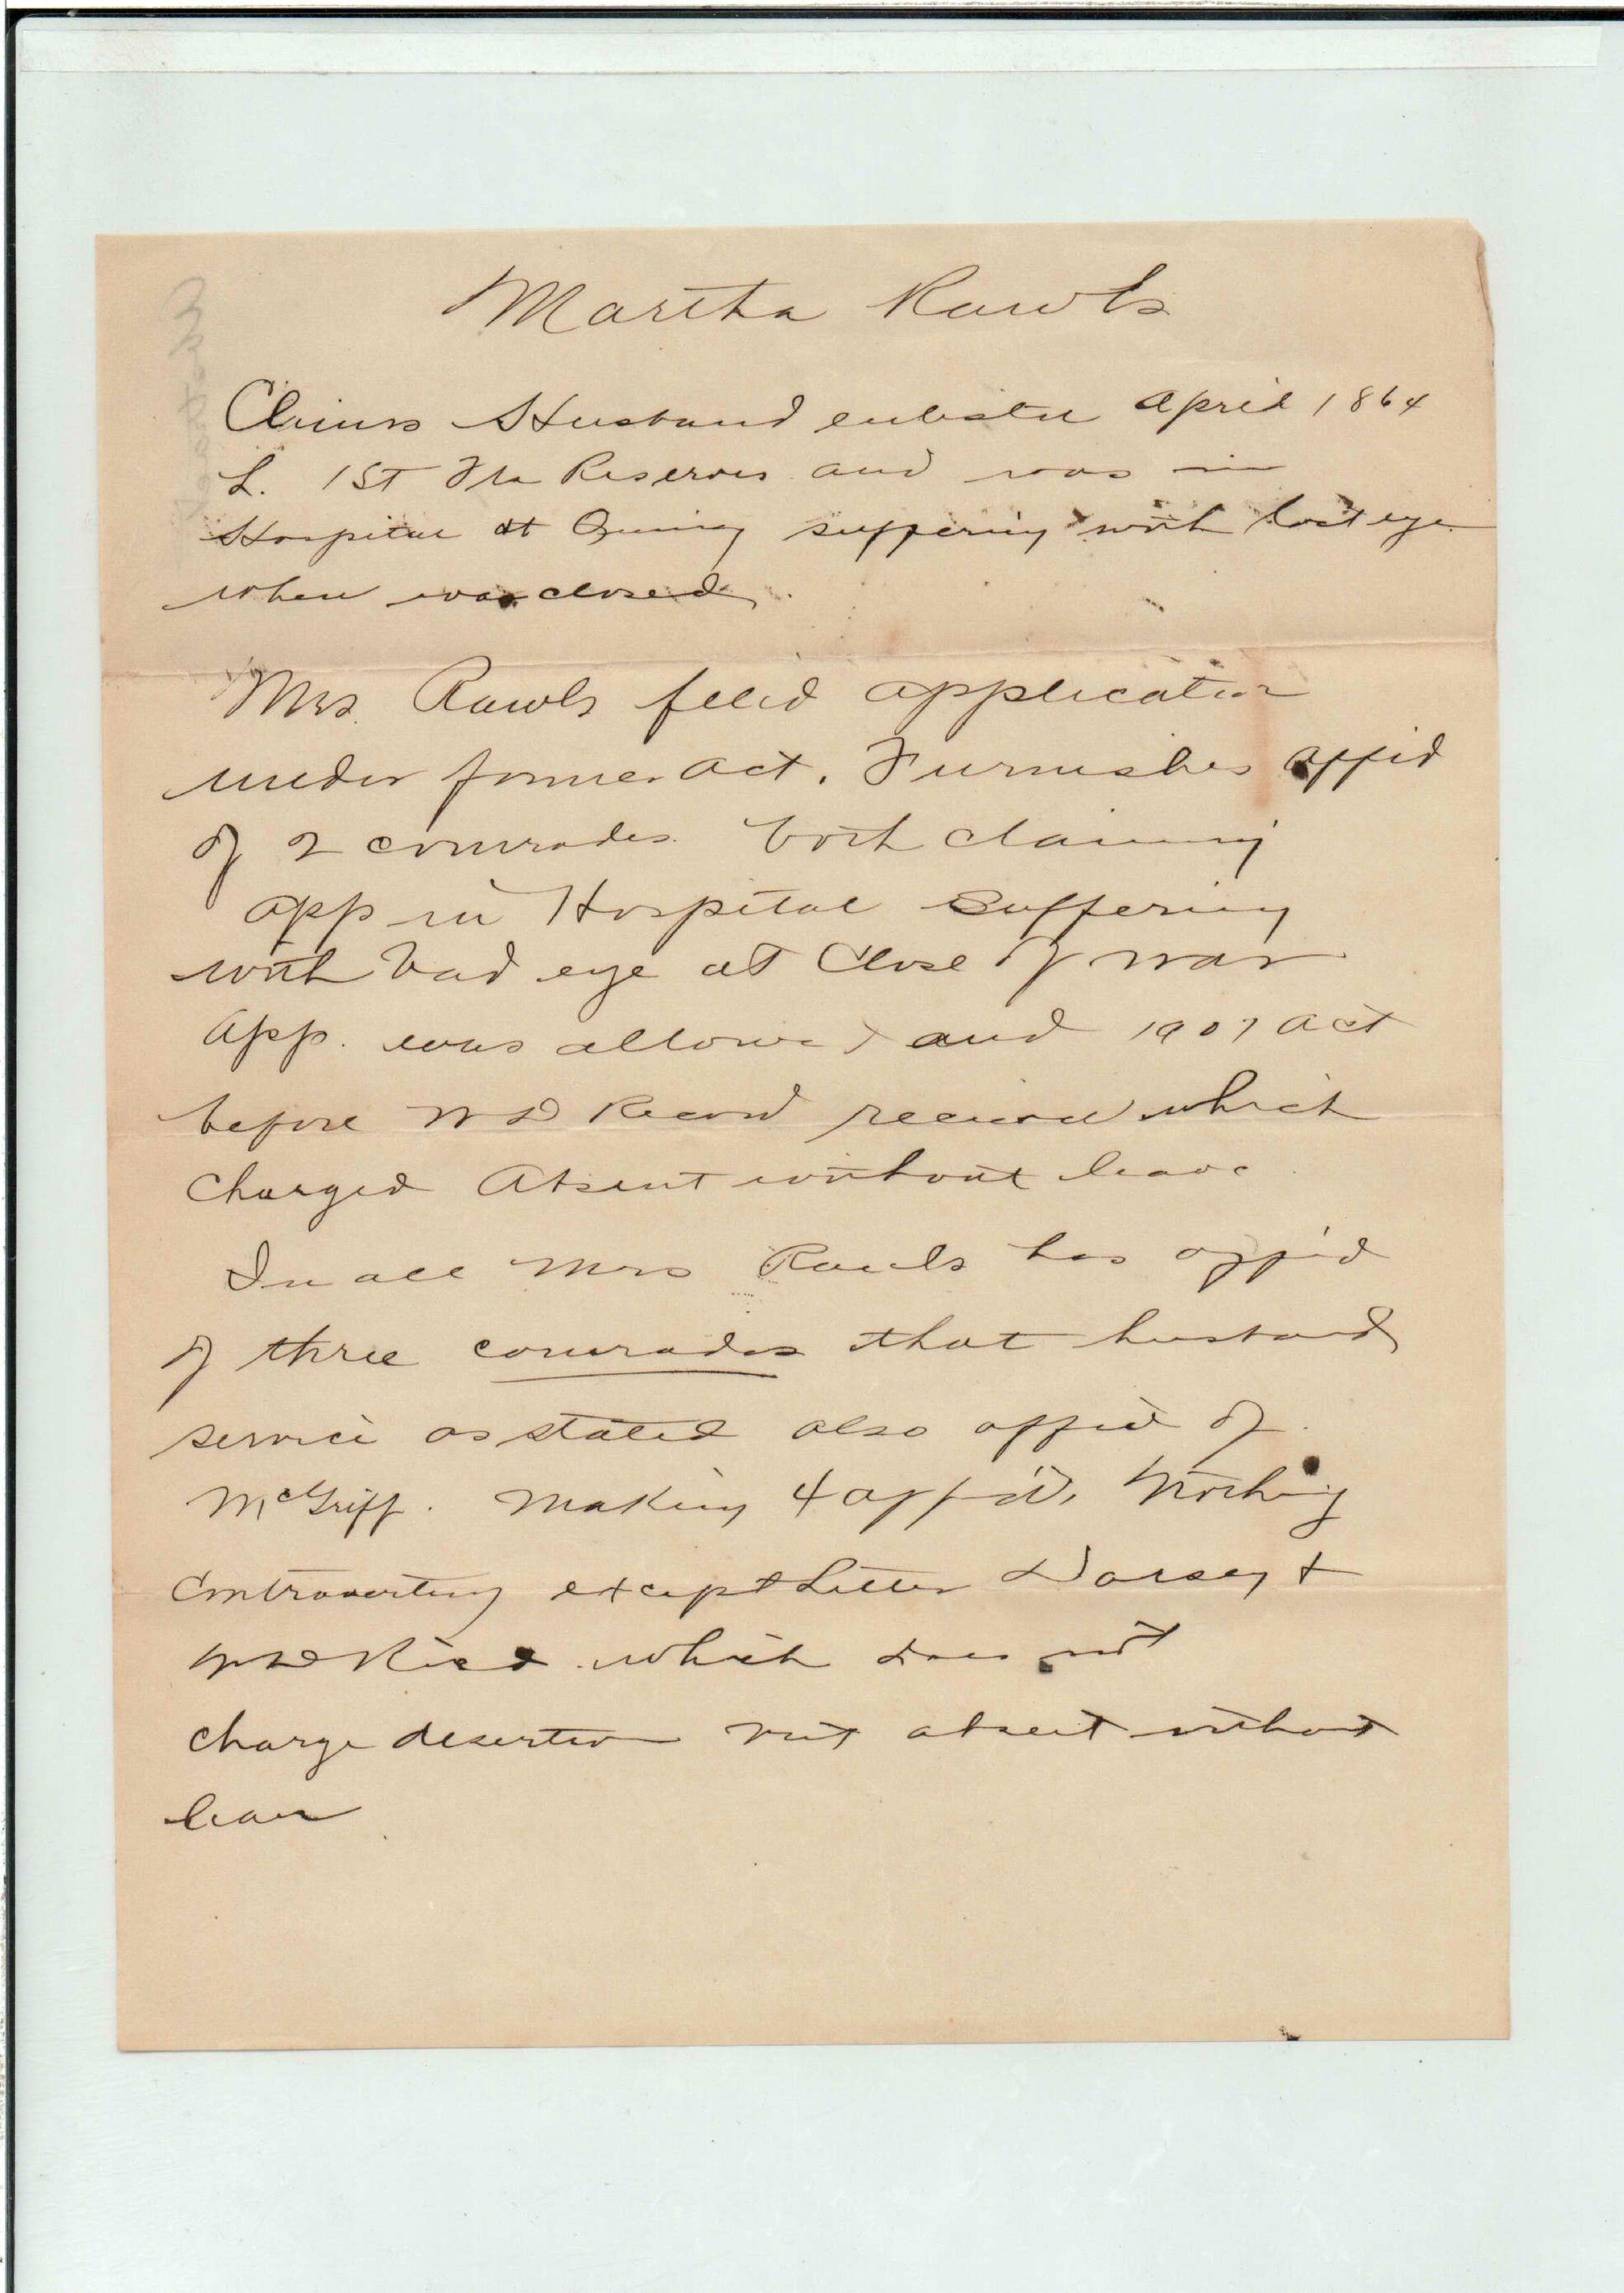 Martha Rawls
Claims Husband enlisted April 1864
L. 1st Fla Reserves and was in
Hospital at Quincy suffering with lost eye
when war closed.
Mrs. Rawls filed application
under former act. Furnishes affid
of 2 comrades. both claiming
app in Hospital suffering
with bad eye at close of war
App. was allowed and 1907 act
before W D Record received which
charged Absent without leave
In all Mrs Rawls has affid
of three comrades that husband
service as stated also affid of
McGriff. Making 4 affid, Nothing
controverting except Letter Dorsey &
W D which does not
charge desertion but absent without
leave